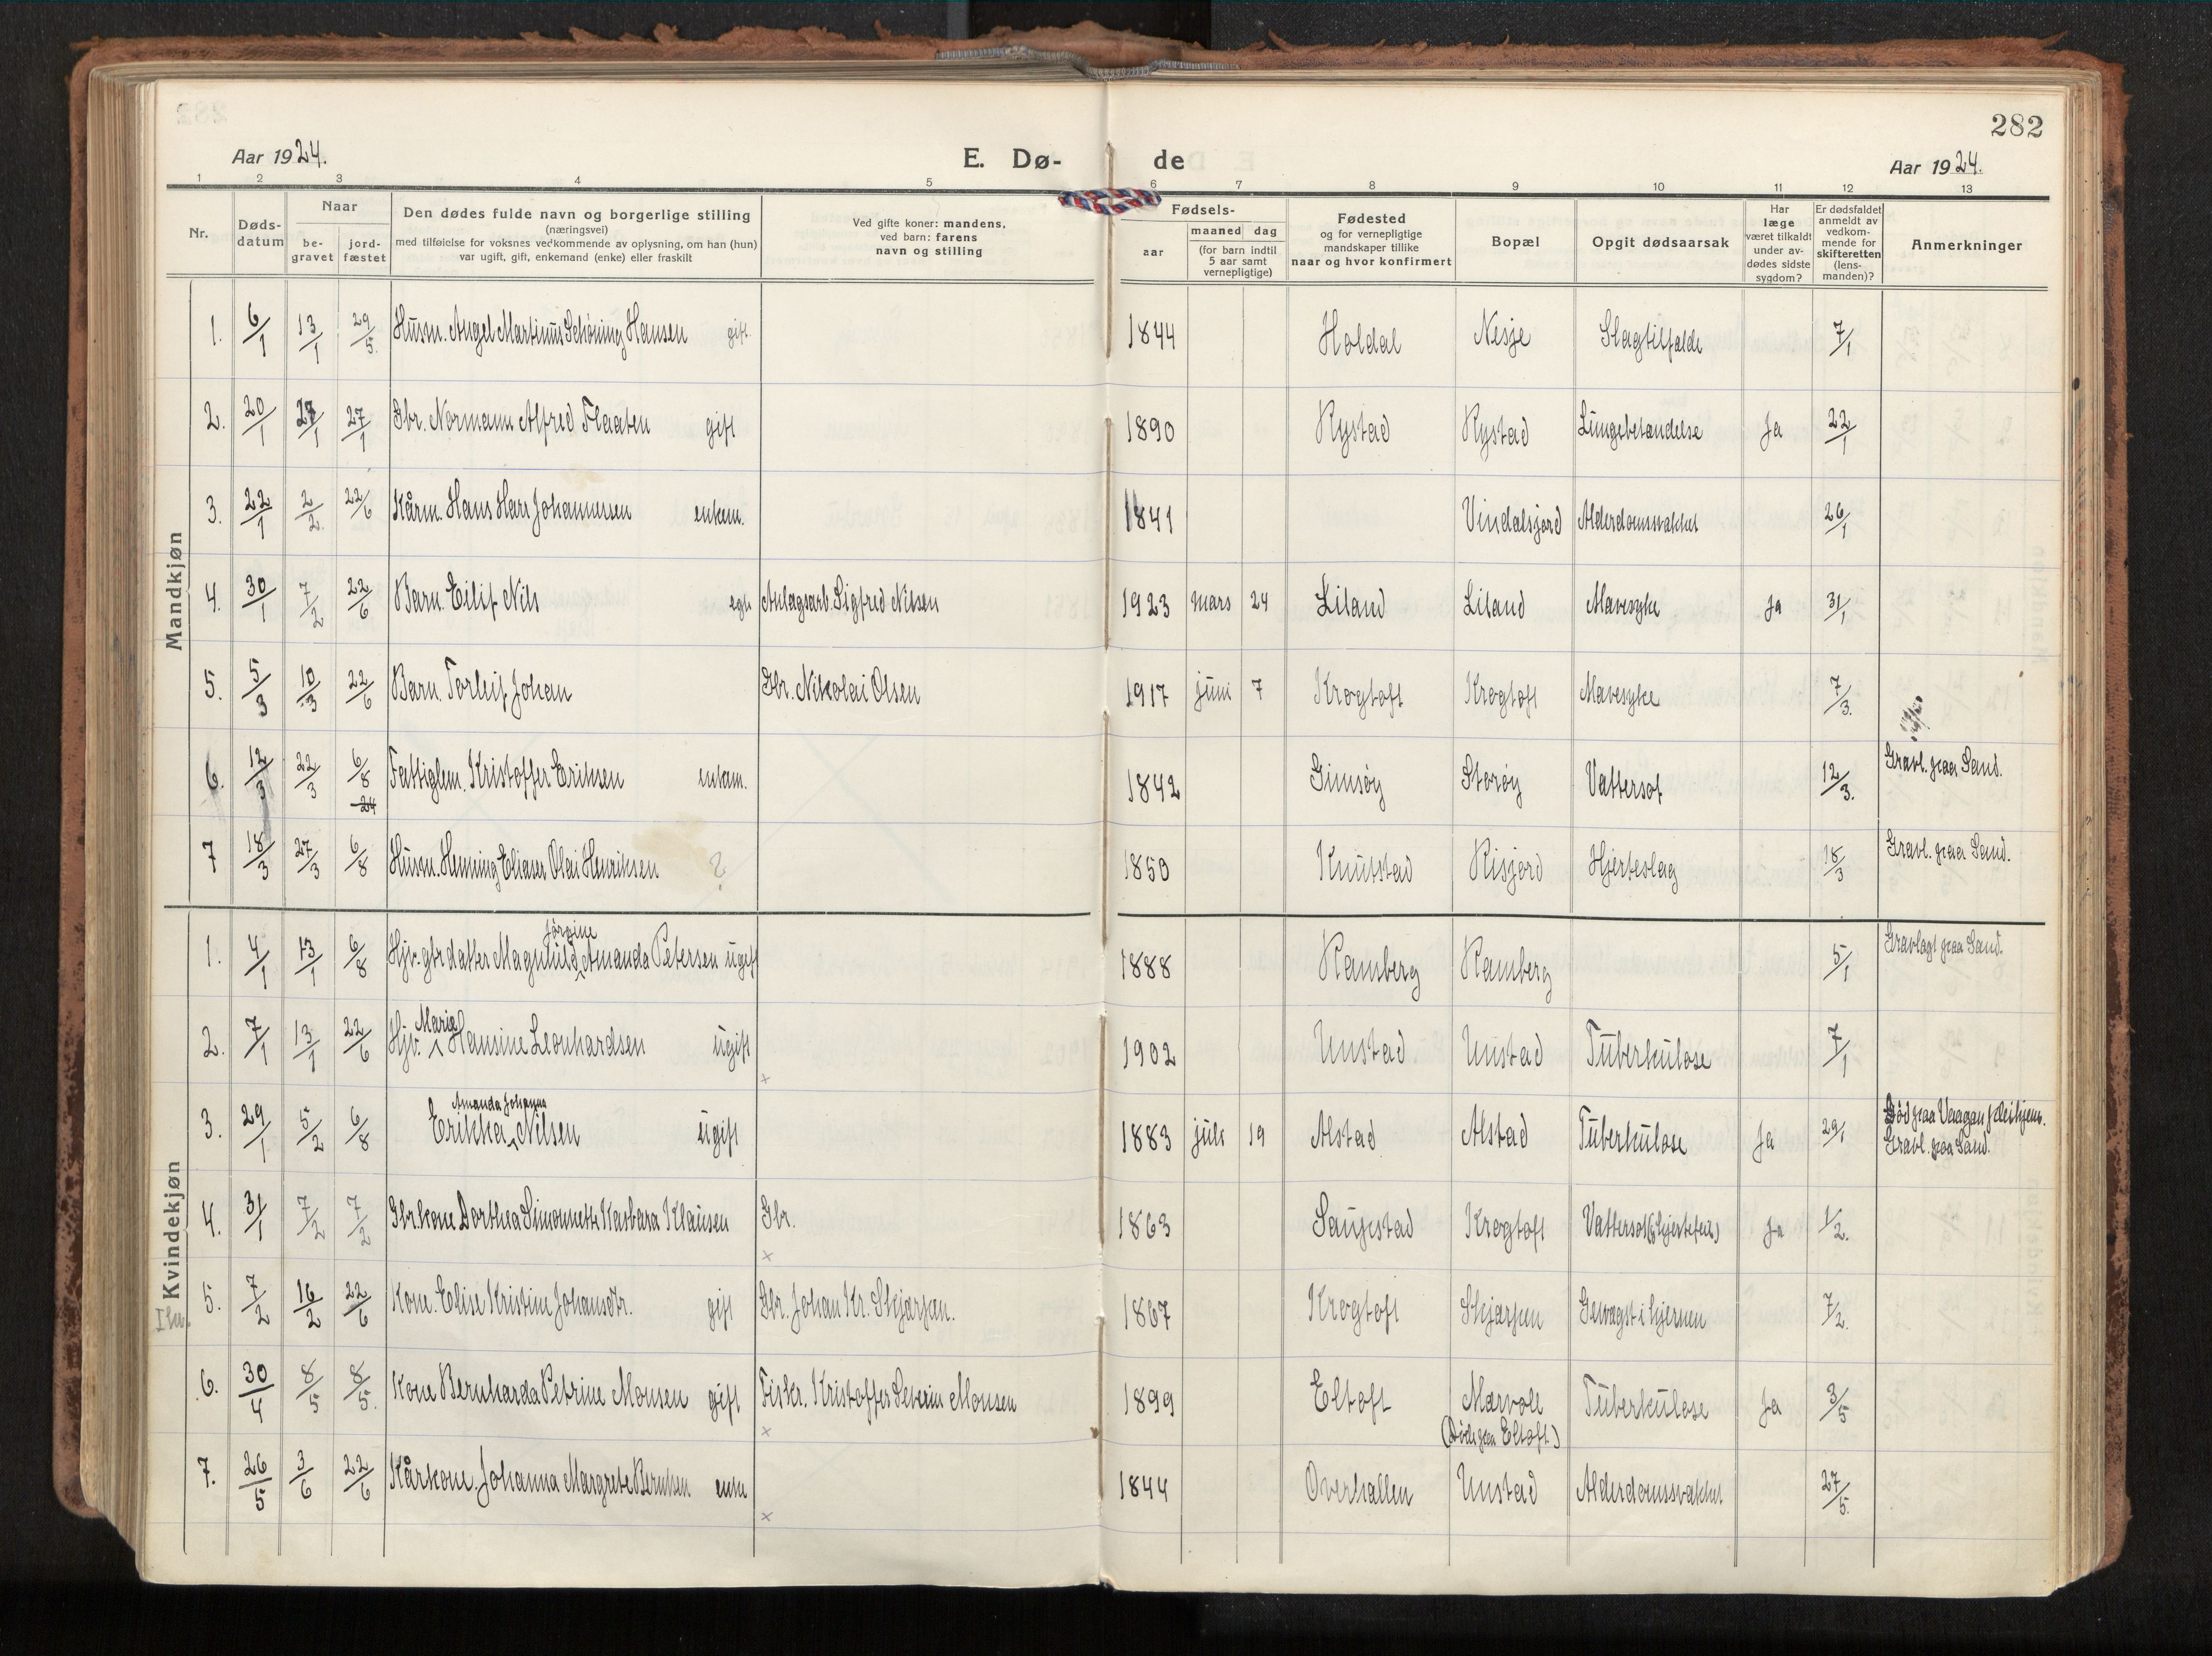 282
Aar 1924.
E. Dø-
de
Aar 1924.
1 2 3 4 5 6 7 8 9 10 11 12 13
Nr.
Døds-
datum
Naar
be-
gravet
jord-
fæstet
Den dødes fulde navn og borgerlige stilling
(næringsvei)
med tilføielse for voksnes vedkommende av oplysning, om han (hun)
var ugift, gift, enkemand (enke) eller fraskilt
Ved gifte koner: mandens,
ved barn: farens
navn og stilling
Fødsels-
aar
maaned dag
(for barn indtil
5 aar samt
vernepligtige)
Fødested
og for vernepligtige
mandskaper tillike
naar og hvor konfirmert
Bopæl
Opgit dødsaarsak
Har
læge
været tilkaldt
under av-
dødes sidste
sygdom?
Er dødsfaldet
anmeldt av
vedkom-
mende for
skifteretten
(lens-
manden)?
Anmerkninger
Mandkjøn
1. 6/1 13/1 29/5. Husm. Angel Martinus Schøning Hansen gift. 1844 Holdal Nesje Slagtilfælde 7/1
2. 20/1 27/1 27/1 Gbr. Normann Alfred Flaaten gift 1890 Rystad Rystad Lungebetændelse Ja 22/1
3. 22/1 2/2. 22/6 Kårm. Hans Johannessen enkem. 1841 Vindalsjord Alderdomssvakhet 26/1
4. 30/1 7/2 22/6 Barn. Eilif Nils egte Anlagsarb. Sigfred Nilsen 1923 mars 24 Liland Liland Mavesyke Ja 31/1
5. 5/3 10/3 22/6 Barn. Torleif Johan Gbr. Nikolai Olsen 1917 juni 7 Krogtoft Krogtoft Mavesyke 7/3.
6. 12/3 22/3 6/8 24 Fattiglem. Kristoffer Eriksen enkem. 1842 Gimsøy Storøy Vattersot 12/3. Gravl. paa Sand.
7 18/3 27/3 6/8 Husm. Henning Eliaser Olai Henriksen ? 1850 Knutstad Risjord Hjerteslag 18/3 Gravl. paa Sand.
Kvindekjøn
Jørgine
1. 4/1 13/1 6/8 Hjv. gbrdatter Magnhild Amanda Petersen ugift 1888 Ramberg Ramberg 5/1 Gravlagt paa Sand.
Marie
2. 7/1 13/1 22/6 Hjv. Hansine Leonhardsen ugift 1902 Unstad Unstad Tuberkulose 7/1
Amanda Johanna
3. 29/1 5/2 6/8 Erikka Nilsen ugift 1883 juli 19 Alstad Alstad Tuberkulose Ja 29/1 Død paa Vaagan pleihjem.
Gravl. paa Sand.
4. 31/1 7/2 7/2 Gbr.kone Dorthea Simonette Barbara Klausen Gbr. 1863 Saupstad Krogtoft Vattersot (hjertefeil) Ja 1/2.
5. 7/2 16/2 22/6 Kone. Elise Kristine Johansdtr. gift Gbr. Johan Kr. Skjærpen. 1867 Krogtoft Skjærpen Gevægst i hjernen 7/2.
6. 30/4 8/5 8/5. Kone Bernharda Petrine Monsen gift Fiskr. Kristoffer Severin Monsen 1899 Eltoft Mærvoll Tuberkulose Ja 3/5
(Døde paa Eltoft.)
7. 26/5 3/6 22/6 Kårkone. Johanna Margrete Berntsen enke 1844 Overhallen Unstad Alderdomssvakhet 27/5.